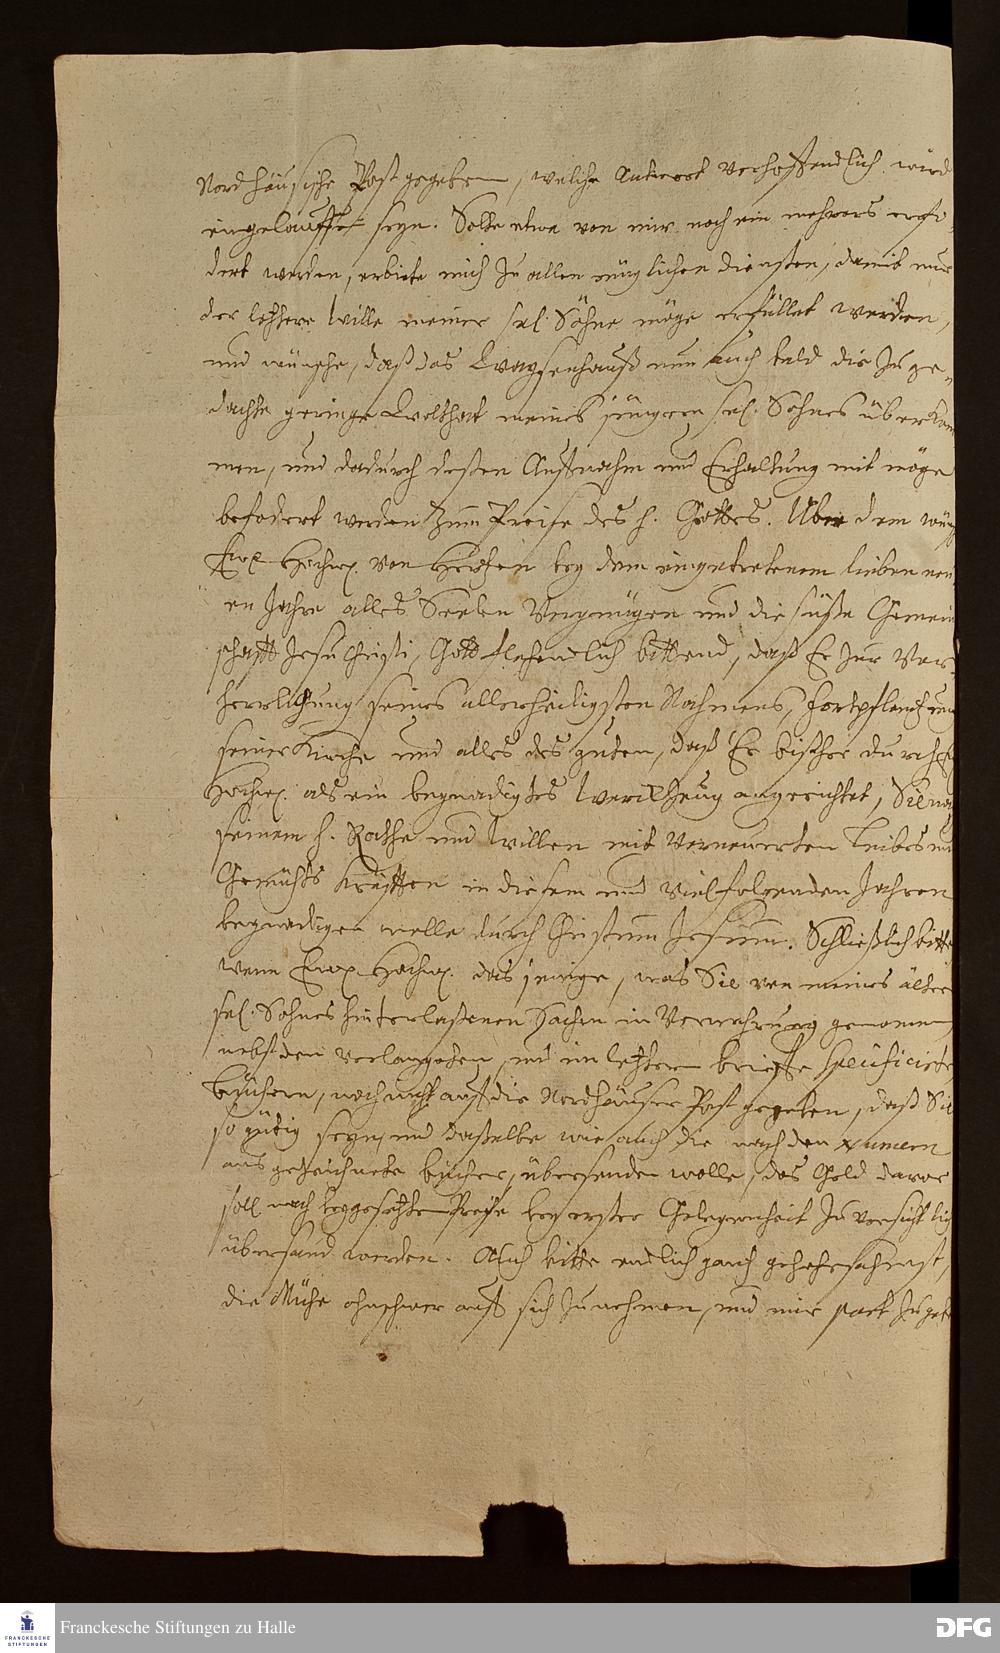 Nordhäusische Post gegeben, welche Antwort verhoffendlich wird
eingelauffen seyn. Solte etwa von mir noch ein mehrers erfo-
dert werden, erbiete mich zu allen müglichen diensten, damit nur
der letztere Wille meiner sel. Söhne möge erfüllet werden,
und wünsche, daß das Waysenhauß nun auch bald die zu ge-
dachte geringe Wolthat meines jüngern sel. Sohnes überkom
men, und dadurch deßen Auffnahm und Erhaltung mit möge
befodert werden zum Preise des h. Gottes. Über dem wünsche
Ew. Hochw. von Hertzen bey dem eingetretenem lieben neu
en Jahre alles Seelen Vergnügen und die süße Gemein
schafft Jesu Christi, Gott flehendlich bittend, daß Er zur Ver-
herrlichung seines allerheiligsten Nahmens, Fortpflantzung
seiner Kirche und alles des guten, daß Er bißher durch Ew.
Hochw. als ein begnadigtes Werckzeug angerichtet, Sie nach
seinem h. Rathe und Willen mit verneuerten Leibes und
Gemühts Kräfften in diesem und viel folgenden Jahren
begnadigen wolle durch Christum Jesum. Schließlich bitte
wenn Ew. Hochw. das jenige, was Sie von meines ältern
sel. Sohnes hinterlaßenen Sachen in Verwahrung genommen,
nebst den verlangeten, und im letztern brieffe specificirten
büchern, noch nicht auff die Nordhäuser Post gegeben, daß Sie
so gütig seyn, und daßelbe wie auch die nach den numern
ausgezeichnete bücher, übersenden wolle, das Geld davor
soll nach beygesetztem Preise bey erster Gelegenheit zuversichtlich
übersand werden. Auch bitte endlich gantz gehorsahmst,
die Mühe ohnschwer auff sich zu nehmen, und mir part zu geben
Franckesche Stiftungen zu Halle
FRANCKESCHE
STIFTUNGEN
DFG